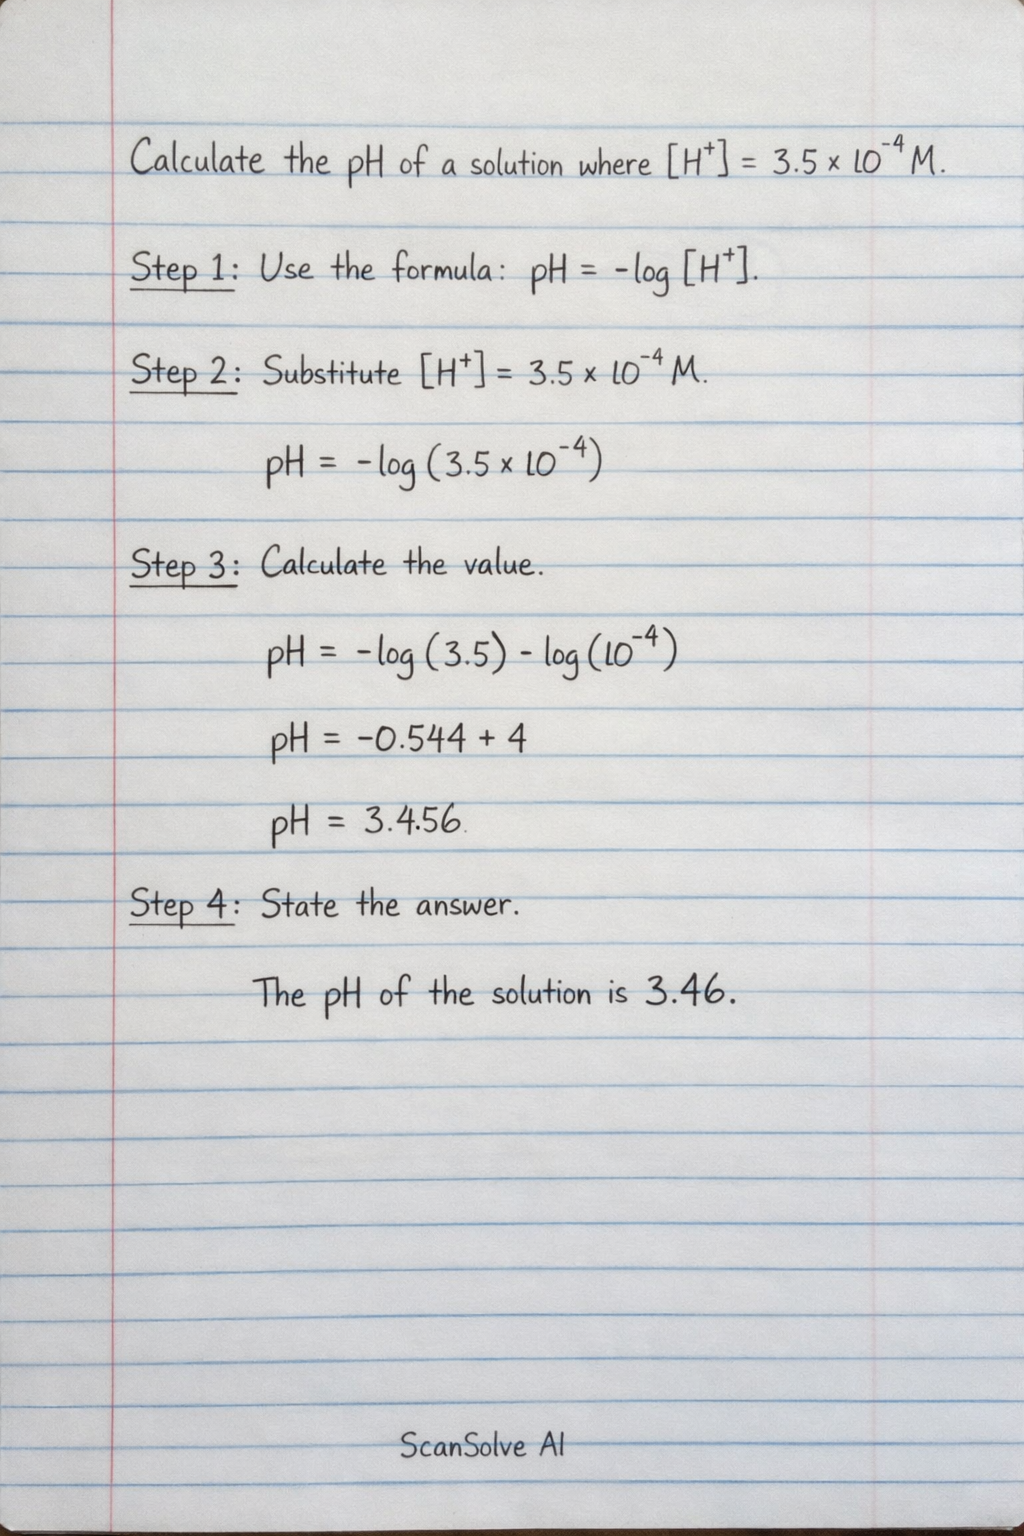 Calculate the pH of a solution where [H⁺] = 3.5 × 10⁻⁴ M.
Step 1: Use the formula: pH = -log [H⁺].
Step 2: Substitute [H⁺] = 3.5 × 10⁻⁴ M.
pH = -log (3.5 × 10⁻⁴)
Step 3: Calculate the value.
pH = -log (3.5) - log (10⁻⁴)
pH = -0.544 + 4
pH = 3.4.56.
Step 4: State the answer.
The pH of the solution is 3.46.
ScanSolve AI